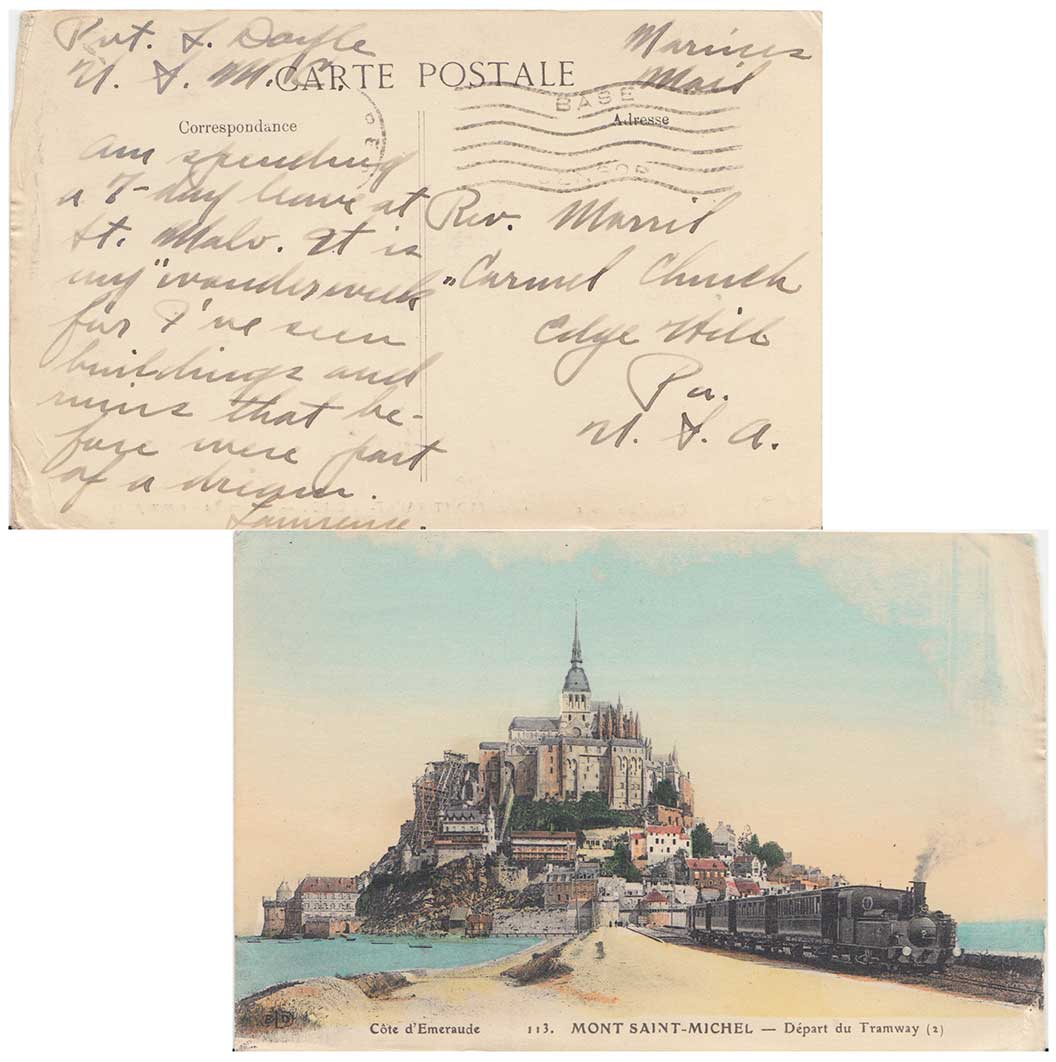 Pvt. L. Doyle
U. S. M. C.
Marines
Mail
CARTE POSTALE
Correspondance
Adresse
BASE
CENSOR
Am spending
a 7-day leave at
St. Malo. It is
my "wonderweek"
for I've seen
buildings and
ruins that be-
fore were part
of a dream.
Lawrence
Rev. Morril
Carmel Church
Edge Hill
Pa.
U. S. A.
ELD
Côte d'Emeraude 113. MONT SAINT-MICHEL — Départ du Tramway (2)